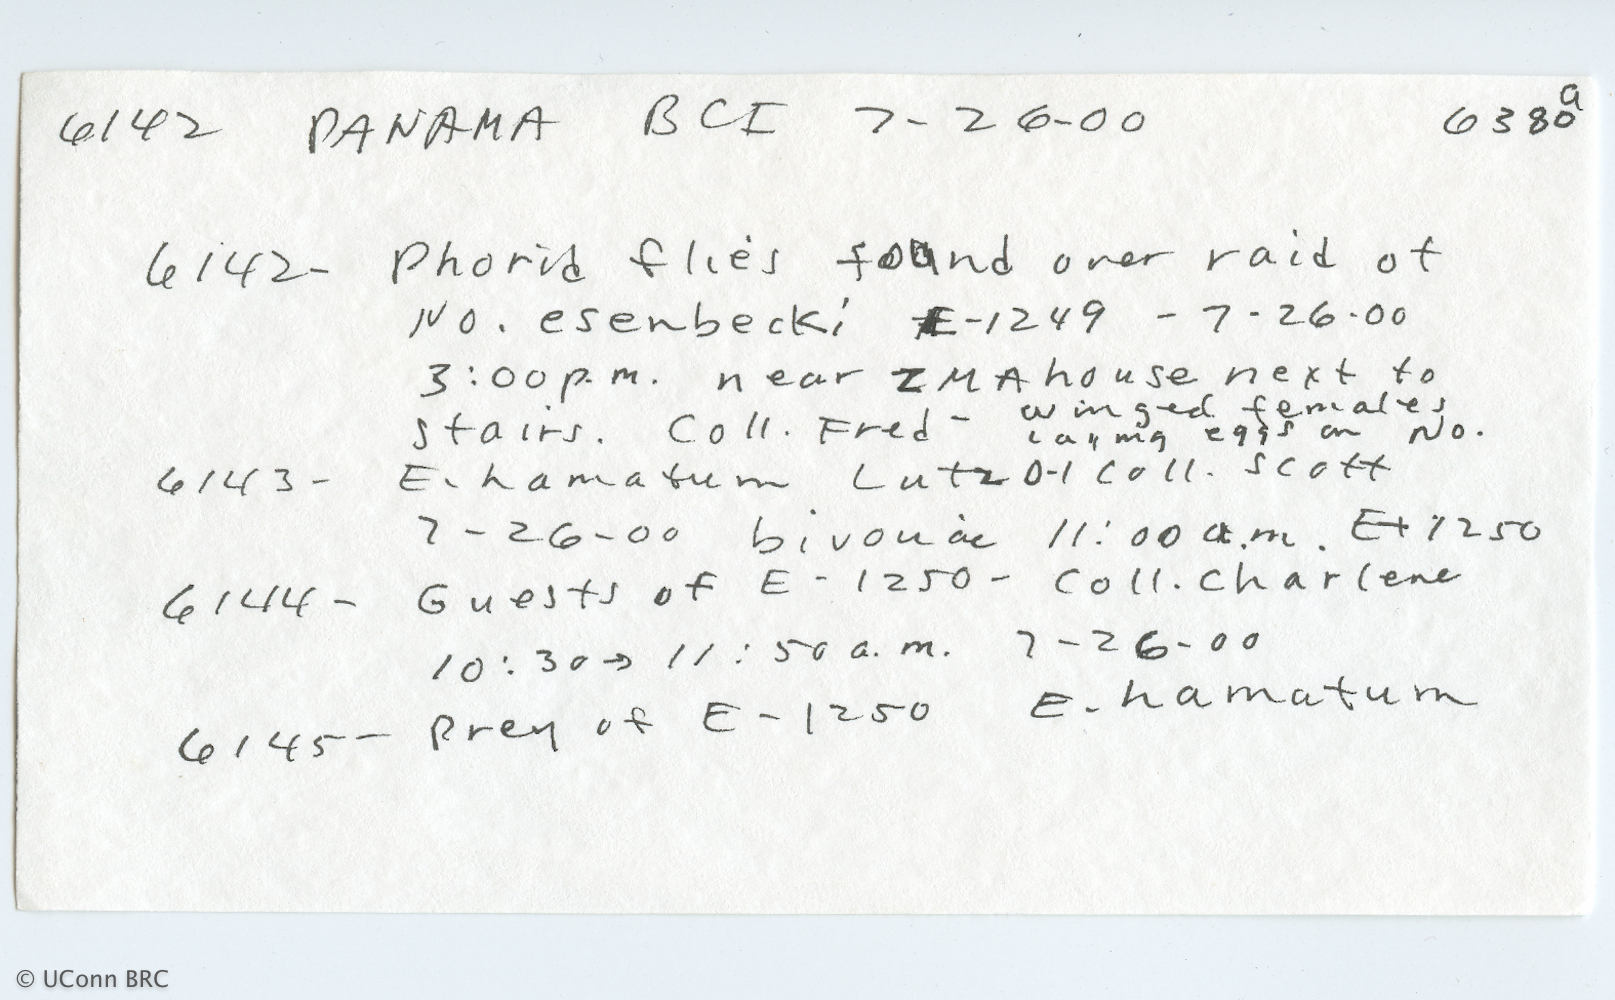 6142 PANAMA BCI 7-26-00 6380a
6142- Phorid flies found over raid of
No. esenbecki E-1249 - 7-26-00
3:00p.m. near ZMA house next to
stairs. Coll. Fred - winged females
laying eggs on No.
6143- E. hamatum Lutz 0-1 Coll. Scott
7-26-00 bivouac 11:00 a.m. E-1250
6144- Guests of E-1250- Coll. Charlene
10:30→11:50 a.m. 7-26-00
6145- Prey of E-1250 E. hamatum
© UConn BRC